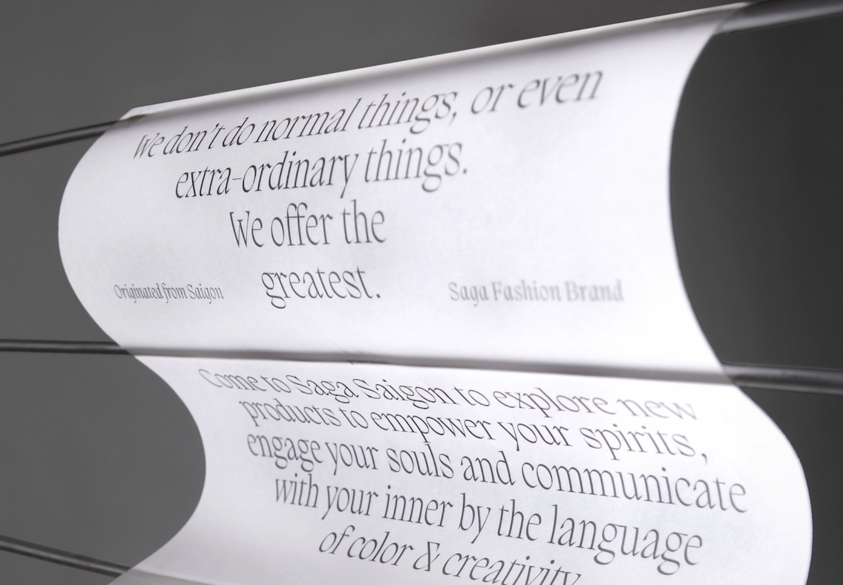 We don't do normal things, or even
extra-ordinary things.
We offer the
greatest.
Originated from Saigon
Saga Fashion Brand
Come to Saga Saigon to explore new
products to empower your spirits,
engage your souls and communicate
with your inner by the language
of color & creativity